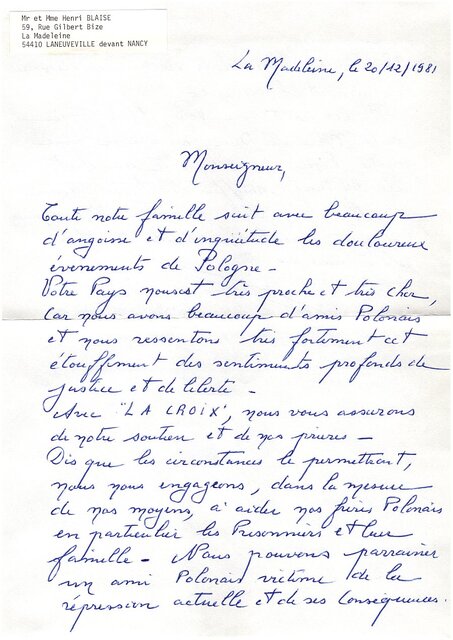 Mr et Mme Henri BLAISE
59, Rue Gilbert Bize
La Madeleine
54410 LANEUVEVILLE devant NANCY
La Madeleine, le 20/12/1981
Monseigneur,
Toute notre famille suit avec beaucoup
d'angoisse et d'inquiétude les douloureux
évènements de Pologne -
Votre Pays nous est très proche et très cher,
Car nous avons beaucoup d'amis Polonais
et nous ressentons très fortement cet
étouffement des sentiments profonds de
justice et de liberté -
Avec "LA CROIX", nous vous assurons
de notre soutien et de nos prières -
Dis que les circonstances le permettront,
nous nous engageons, dans la mesure
de nos moyens, à aider nos frères Polonais
en particulier les Prisonniers et leur
famille - Nous pouvons parrainer
un ami Polonais victime de la
répression actuelle et de ses Conséquences.